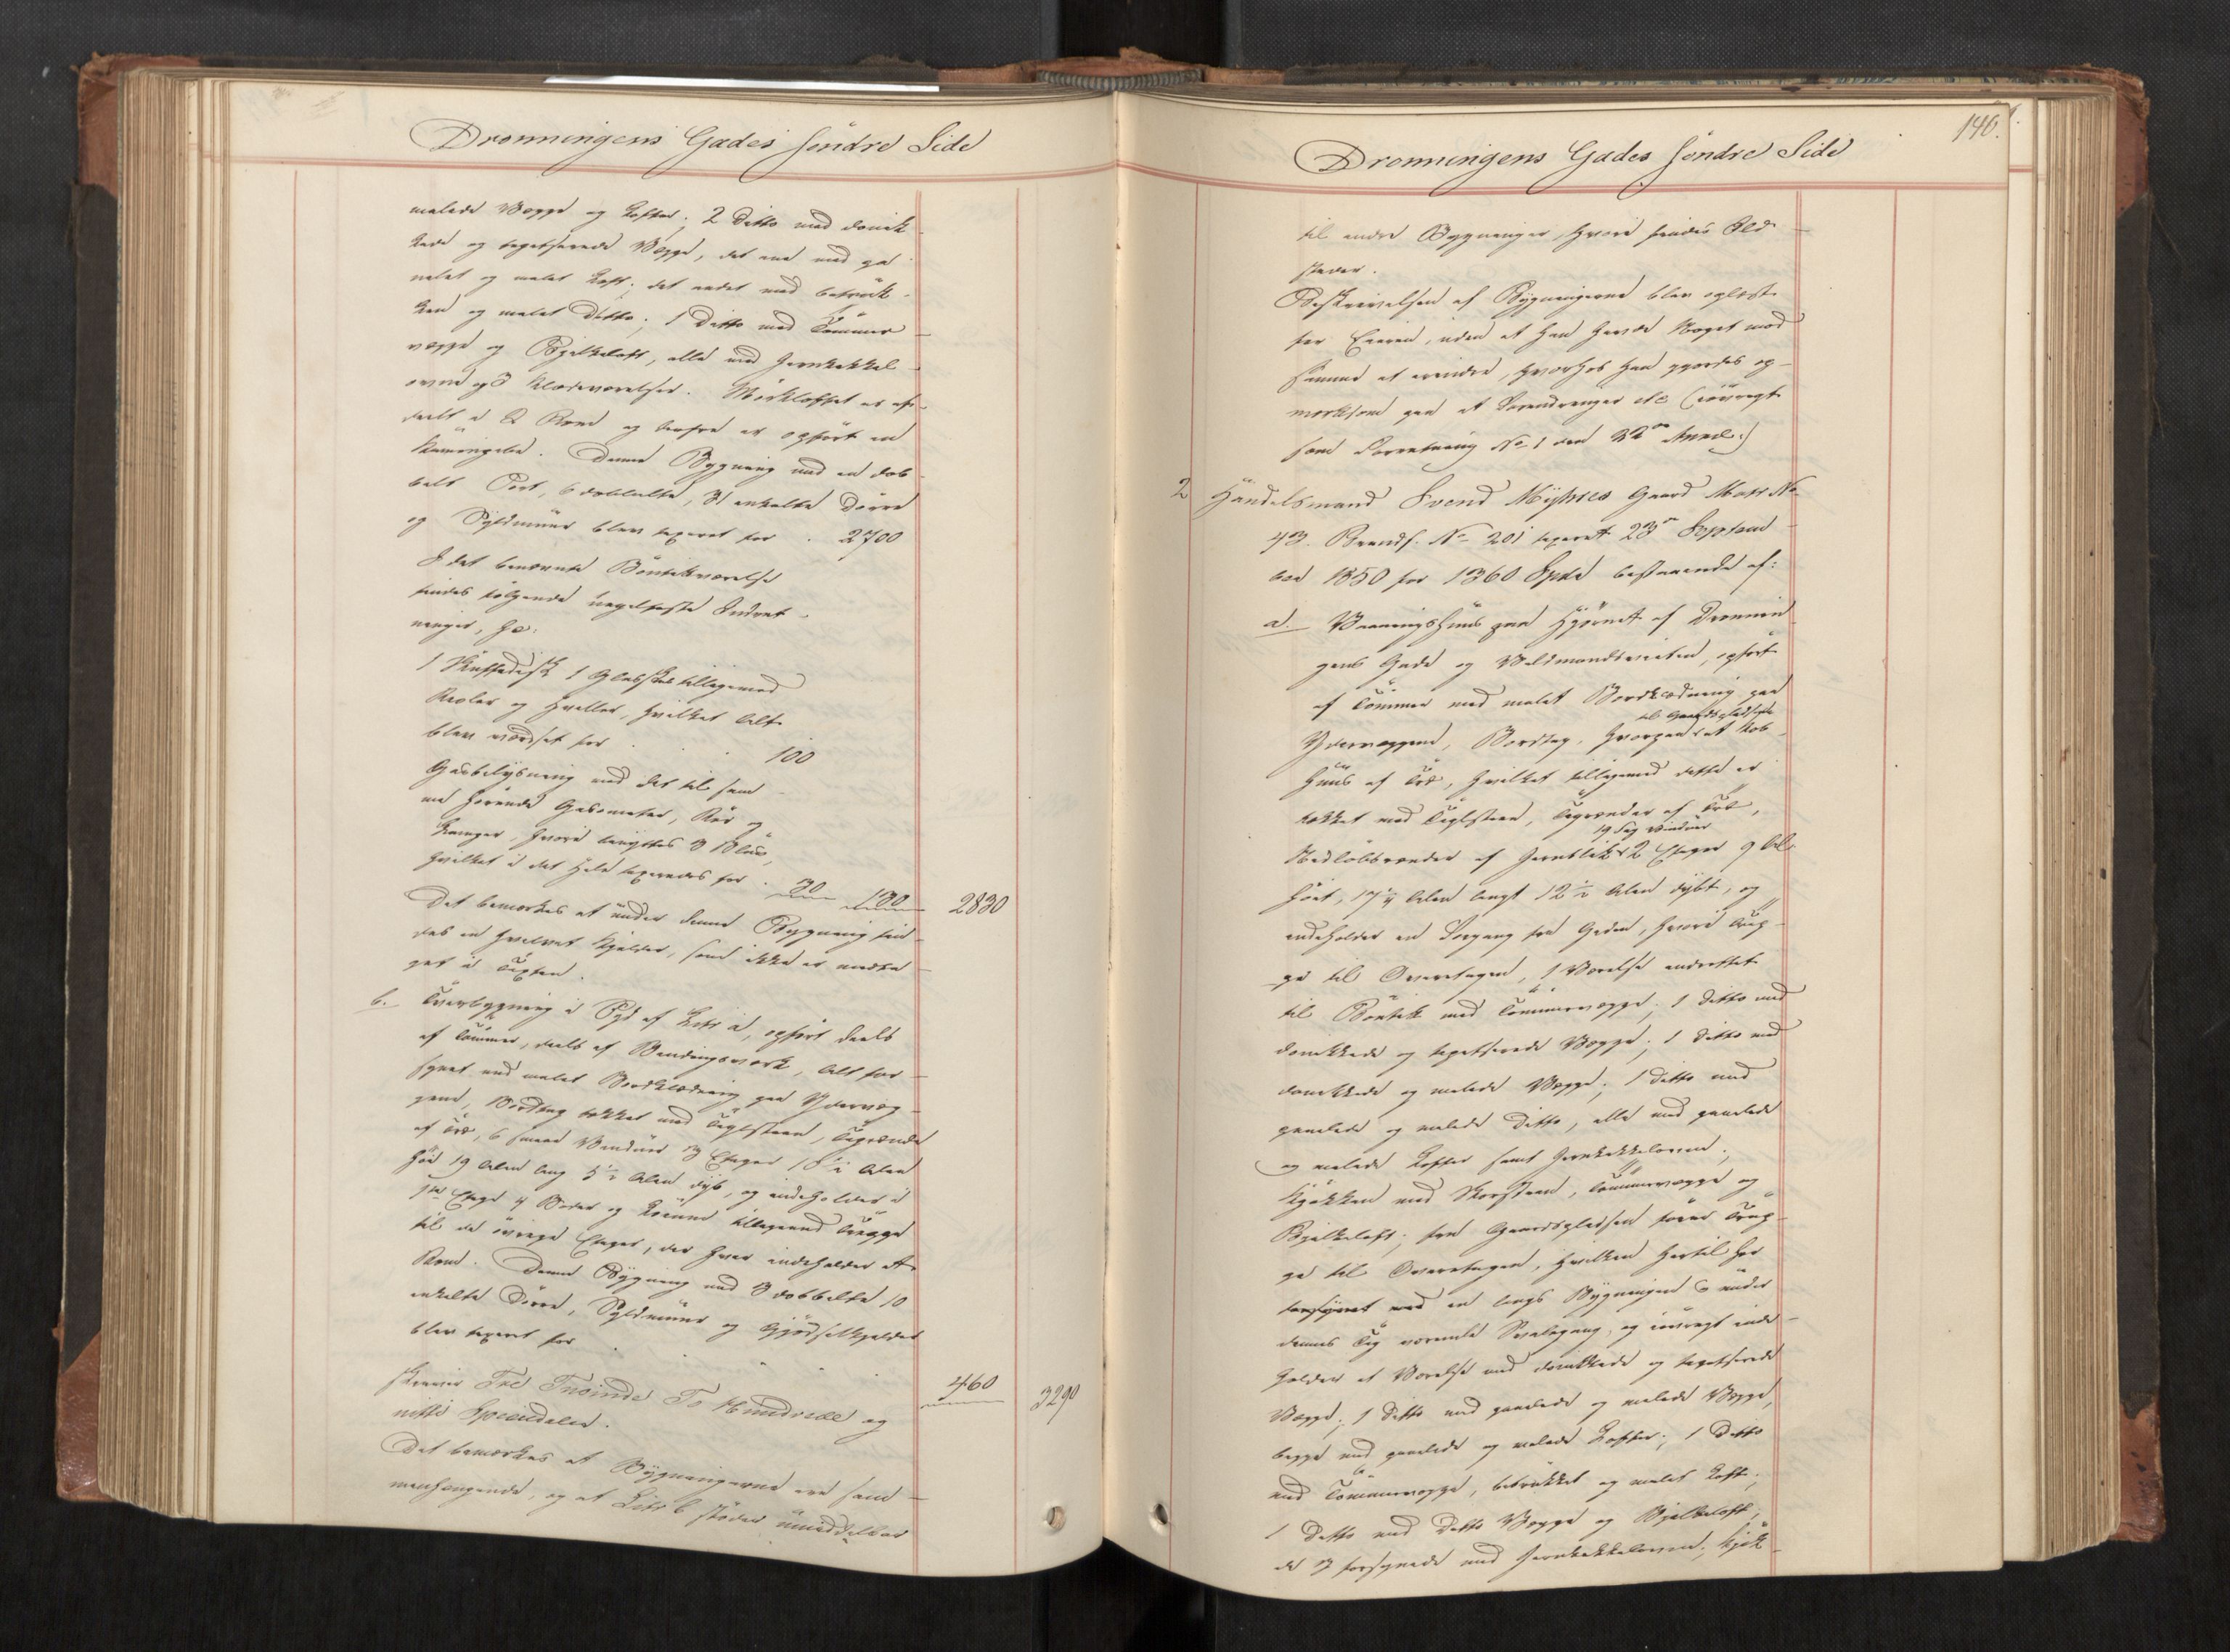 Dronningens Gades söndre Side
malede Vægge og Lofter; 2 Ditto med donik-
kede og tapetserede Vægge, det ene med pa-
nelet og malet Loft; det andet med betræk-
ket og malet Ditto; 1 Ditto med Tömmer-
vægge og Bjelkeloft, alle med Jernkakkel-
ovne og 3 Klædeværelser. Mörkloftet er af-
deelt i 2 Rum og derfra er opfört en
Kvistgelee. Denne Bygning med en dob-
belt Port, 6 dobbelte, 31 enkelte Dörre
og Syldmuur blev taxeret for . 2700
I det benævnte Boutikværelse
findes fölgende nagelfaste Indret-
ninger, Hr:
1 Skuffedisk 1 Glasskab tilligemed
Reoler og Hyller, hvilket Alt
blev værdsat for . . 100
Gasbelysning med det til sam-
me hörende Gasometer, Rör og
Lamper, hvori benyttes 3 Blus,
hvilket i det Hele taxeredes for . 30 130 2830
Det bemærkes at under denne Bygning fin-
des en hvælvet Kjelder, som ikke er medta-
get i Taxten.
b. Tværbygning i Syd af Litr a, opfört deels
af Tömmer, deels af Bindingsværk, Alt for-
synet med malet Bordklædning paa Ydervæg-
gene, Bordtag tækket med Taglsteen, Tagrender
af Træ, 6 smaae Vinduer 3 Etager 10½ Alen
höi 19 Alen lang 5½ Alen dyb, og indeholder i
1ste Etage 4 Boder og Locum tilligemed Trappe
til de övrige Etager, der hver indeholder et
Rum. Denne Bygning med 3 dobbelte 10
enkelte Dörre, Syldmuur og Gjödselkjelder
blev taxeret for . . . 460 3290
skriver Tre Tusinde To Hundrede og
nitti Speciedaler.
Det bemærkes at Bygningerne ere sam-
menhængende, og at Litr b stöder umiddelbar
140.
Dronningens Gades söndre Side
til andre Bygninger, hvori findes Ild-
steder.
Beskrivelsen af Bygningerne blev oplæst
for Eieren, uden at han havde Noget mod
samme at erindre, hvorhos han gjordes op-
mærksom paa at Forandringer etc (iövrigt
som Forretning No 1 den 22de April.)
2 Handelsmand Svend Myhres Gaard Matr No
43. Brands. No 201 taxeret 23de Septem-
ber 1850 for 1360 Spd bestaaende af:
a. Vaaningshuus paa Hjörnet af Dronnin-
gens Gade og Voldmandsveiten, opfört
af Tömmer med malet Bordklædning paa
til Gaardspladsen
Ydervæggene, Bordtag, hvorpaa et Kob-
huus af Træ, hvilket tilligemed dette er
tækket med Taglsteen, Tagrender af Træ,
19 Fag Vinduer
Nedlöbsrender af Jernblik 2 Etager 9 Al.
höit, 17¼ Alen langt 12½ Alen dybt, og
indeholder en Forgang fra Gaden, hvori Trap-
pe til Overetagen, 1 Værelse indrettet
til Boutik med Tömmervægge; 1 Ditto med
donikkede og tapetserede Vægge; 1 Ditto med
donikkede og malede Vægge; 1 Ditto med
panelede og malede Ditto, alle med panelede
og malede Lofter samt Jernkakkelovne;
Kjökken med Skorsteen, Tömmervægge og
Bjelkeloft; fra Gaardspladsen förer Trap-
pe til Overetagen, hvilken hertil har
en langs Bygningen under
dennes Tag værende Svalegang, og iövrigt inde-
holder et Værelse med donikkede og tapetserede
Vægge; 1 Ditto med panelede og malede Vægge,
begge med panelede og malede Lofter; 1 Ditto
med Tömmervægge, betrækket og malet Loft;
1 Ditto med Ditto Vægge og Bjelkeloft;
de 3 forsynede med Jernkakkelovne; Kjök-